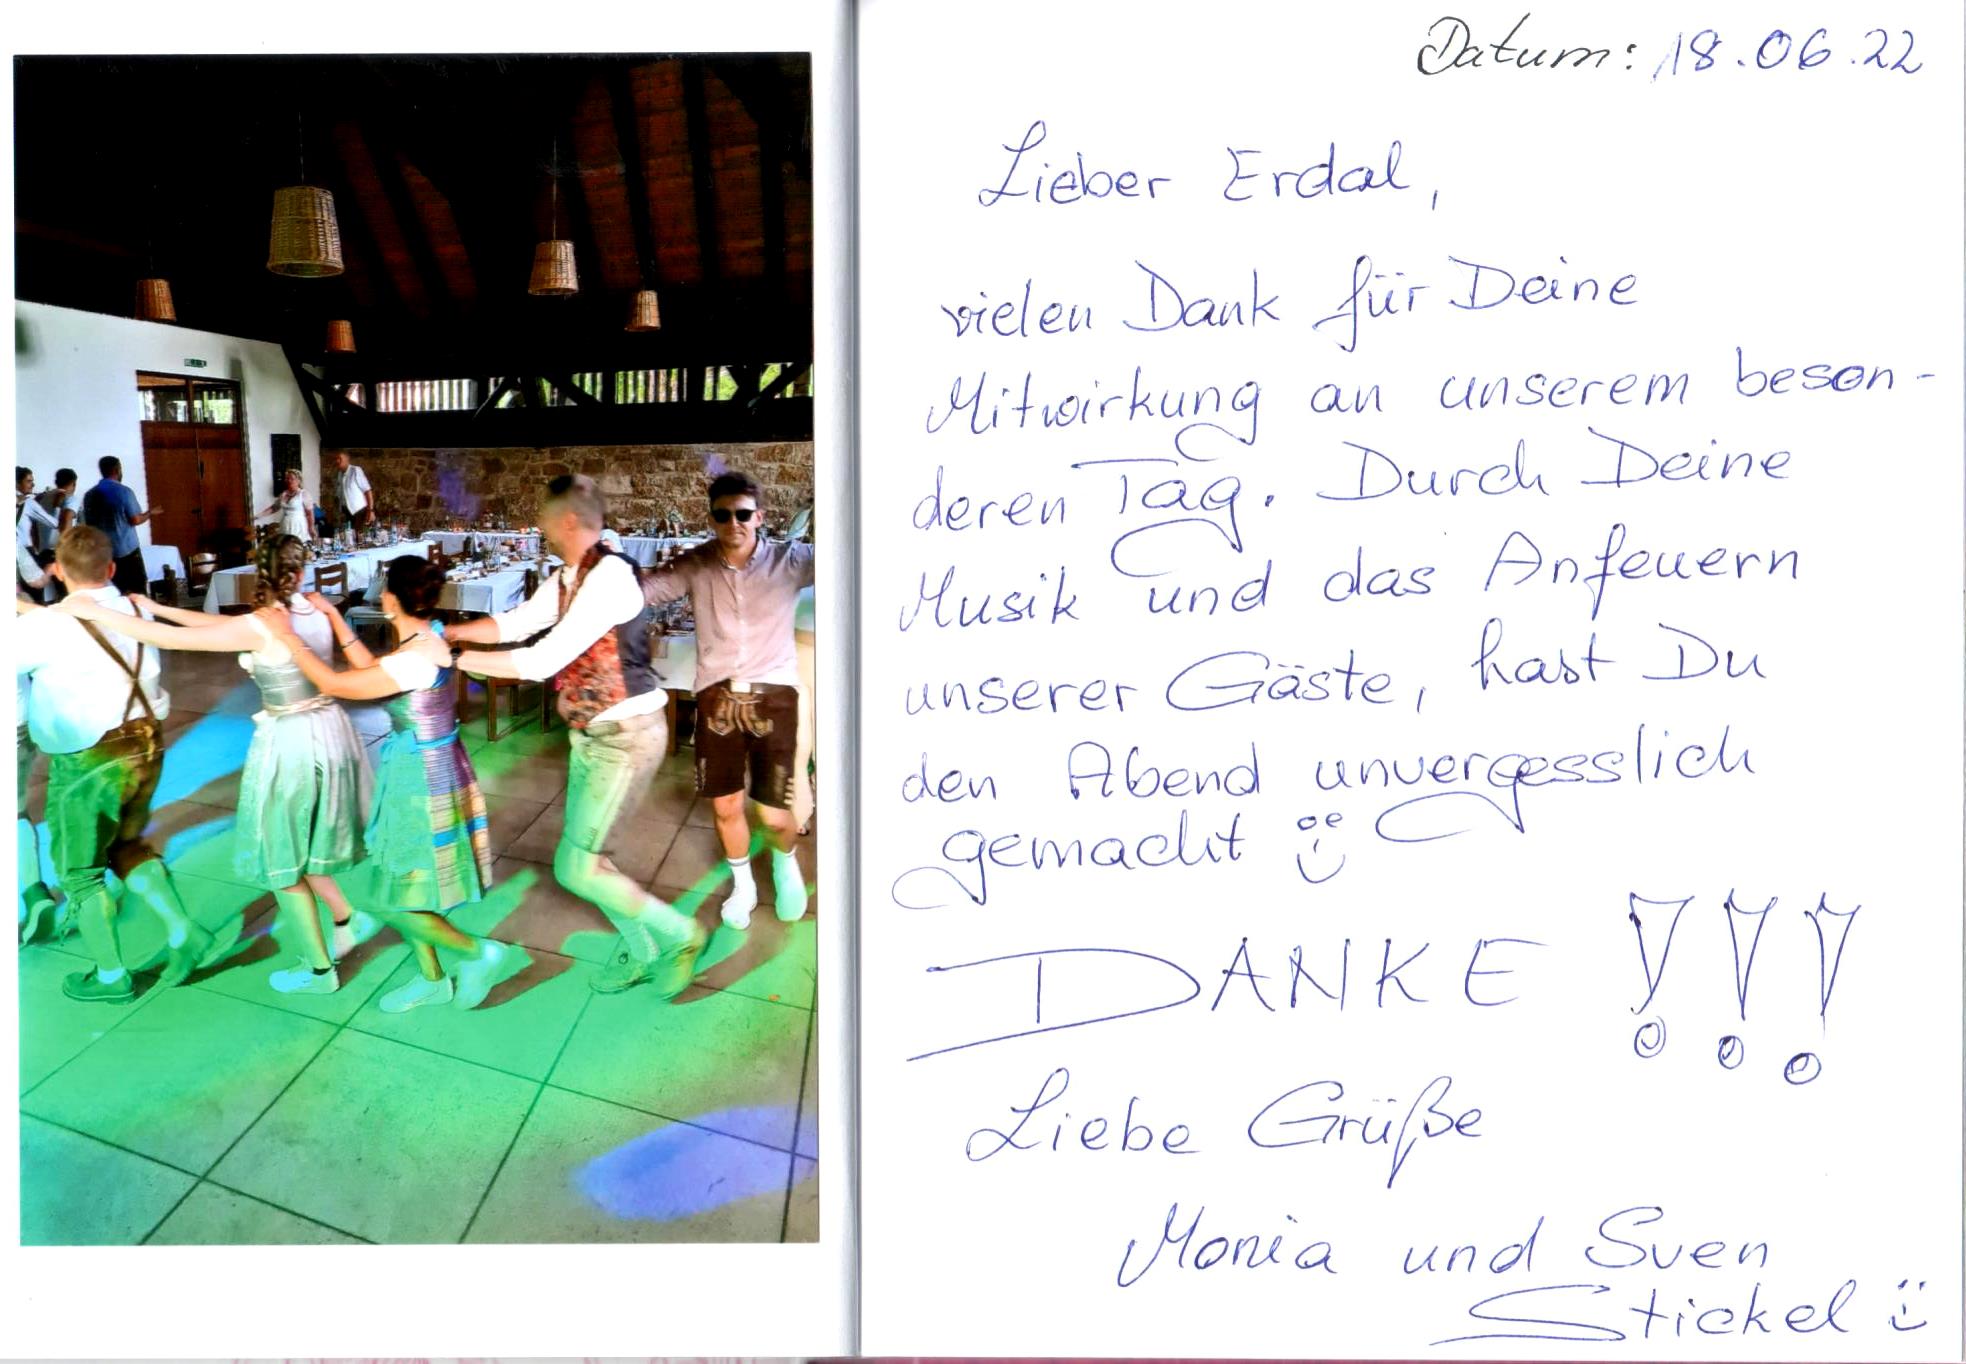 Datum: 18.06.22
Lieber Erdal,
vielen Dank für Deine
Mitwirkung an unserem beson-
deren Tag. Durch Deine
Musik und das Anfeuern
unserer Gäste, hast Du
den Abend unvergesslich
gemacht
DANKE !!!
Liebe Grüße
Monia und Sven
Stickel